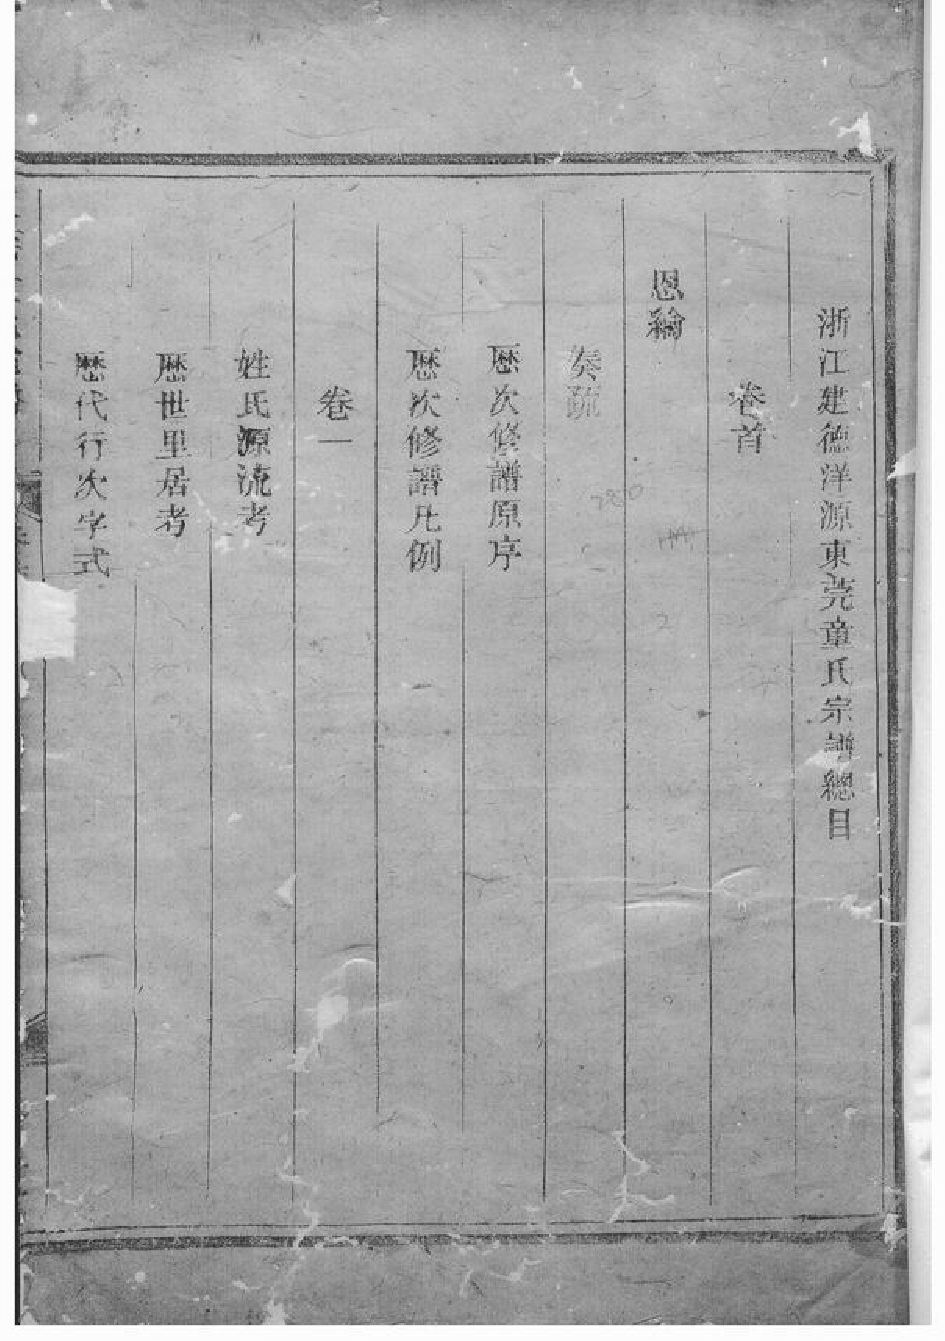 浙江建德洋源東莞童氏宗譜總目
卷首
恩綸
奏疏
歷次修譜原序
歷次修譜凡例
卷一
姓氏源流考
歷世里居考
歷代行次字式